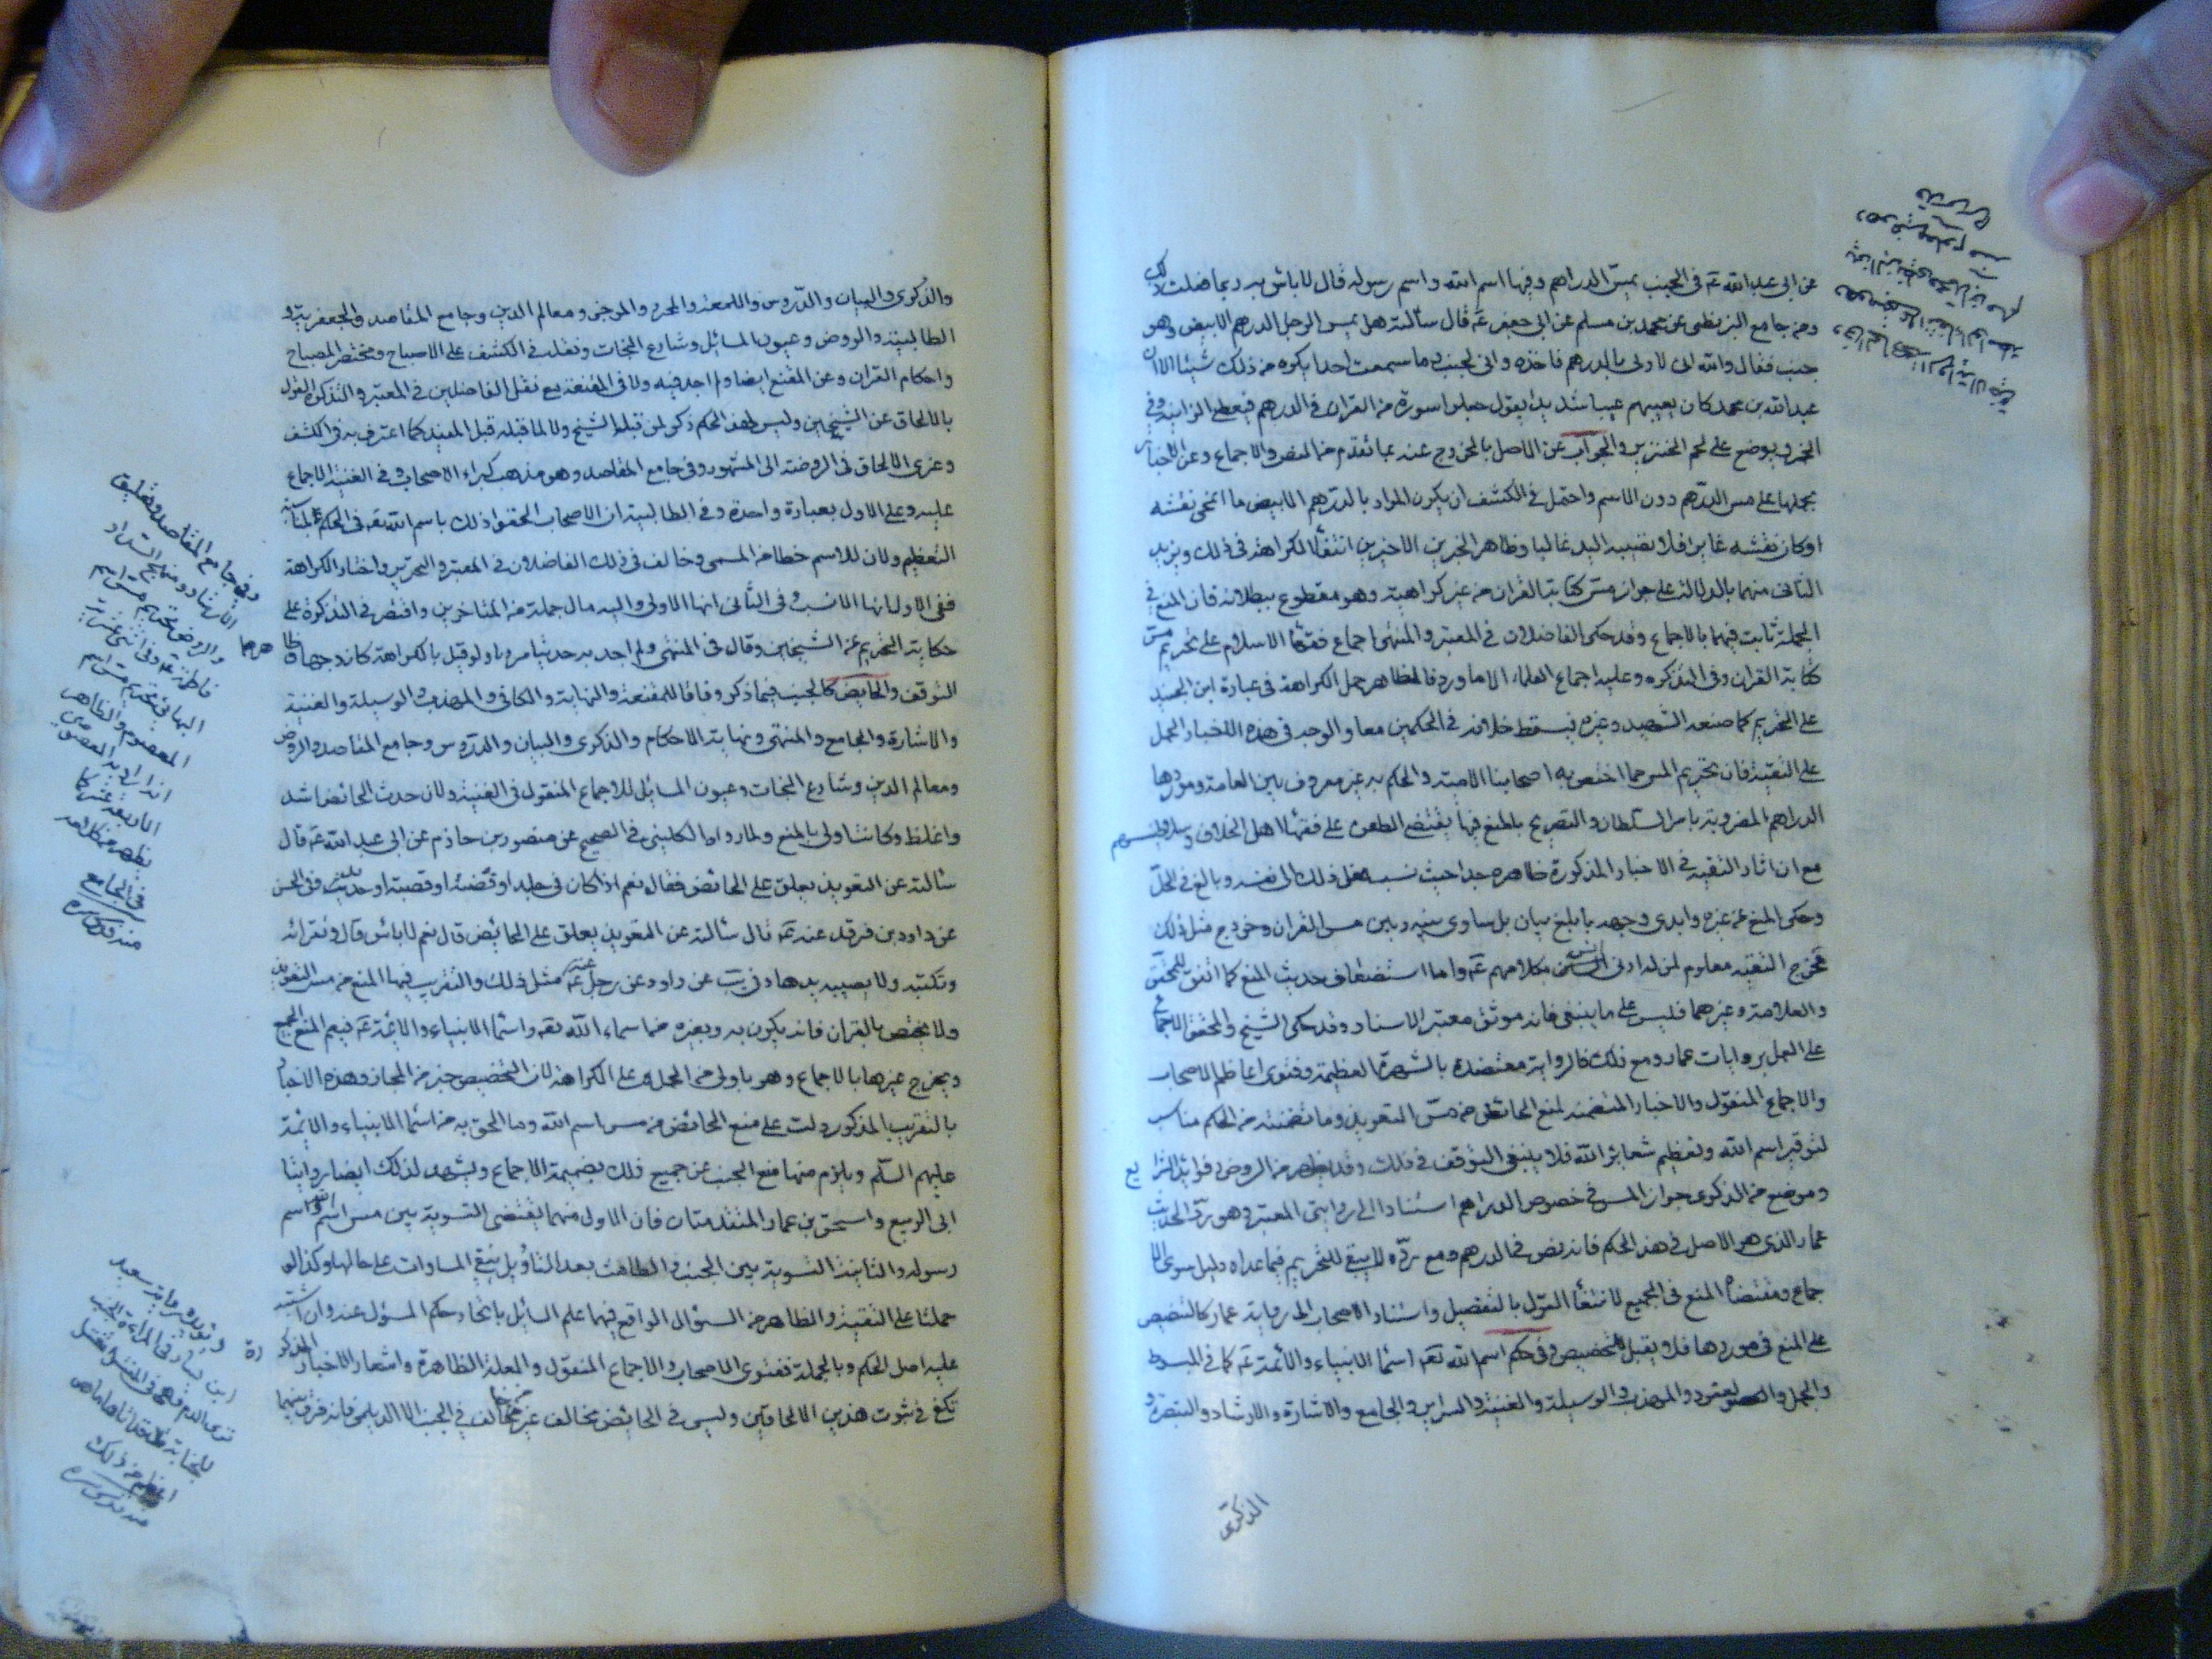 عن ابى عبد الله عَ فى الجنب يمسّ الدراهم وفيها اسم الله واسم رسوله قال لا باس به ربما فعلت ذلك
ومن جامع البزنطى عن محمد بن مسلم عن ابى جعفر عَ قال سألته هل يمس الرجل الدرهم الابيض وهو
جنب فقال والله انى لاوتى بالدرهم فاخذه وانى لجنب وما سمعت احدا يكره من ذلك شيئا الا ان
عبد الله بن محمد كان يعيبهم عيبا شديدا يقول جعلوا سورة من القران فى الدرهم فيعطى الزانية وفى
الخمر ويوضع على لحم الخنزير والجواب عن الاصل بالخروج عنه بما تقدم من النص والاجماع وعن الاخبار
بحملها على مس الدرهم دون الاسم واحتمل فى الكشف ان يكون المراد بالدرهم الابيض ما انمحى نقشه
او كان نقشه غايرا فلا تصيبه اليد غالبا وظاهر الخبرين الاخيرين انتفاء الكراهة فى ذلك ويزيد
الثانى منهما بالدلالة على جواز مسّ كتابة القران من غير كراهية وهو مقطوع ببطلانه فان المنع فى
الجملة ثابت فيهما بالاجماع وقد حكى الفاضلان فى المعتبر والمنتهى اجماع فقهاء الاسلام على تحريم مسّ
كتابة القران وفى التذكره وعليه اجماع العلماء الا داود فالظاهر حمل الكراهة فى عبارة ابن الجنيد
على التحريم كما صنعه الشهيد وغيره فيسقط خلافه فى الحكمين معا والوجه فى هذه الاخبار الحمل
على التقية فان تحريم المس مما اختص به اصحابنا الامامية والحكم به غير معروف بين العامة وموردها
الدراهم المضروبة بامر السلطان والتصريح بالمنع فيها يقتضى الطعن على فقهاء اهل الخلاف وسلاطينهم
مع ان اثار التقيه فى الاخبار المذكورة ظاهره جدا حيث نسب فعل ذلك الى نفسه وبالغ فى الحلّ
وحكى المنع عن غيره وابدى وجهه بابلغ بيان بل ساوى بينه وبين مس القران وخروج مثل ذلك
مخرج التقيه معلوم لمن له ادنى انس بكلامهم عَ واما استضعاف حديث المنع كما اتفق للمحقق
والعلامة وغيرهما فليس على ما ينبغى فانه موثق معتبر الاسناد وقد حكى الشيخ والمحقق الاجماع
على العمل بروايات عمار ومع ذلك فالرواية معتضدة بالشهرة العظيمة وفتوى اعاظم الاصحاب
والاجماع المنقول والاخبار المتضمنه لمنع الحائض من مسّ التعويذ وما تضمنته من الحكم مناسب
لتوقير اسم الله وتعظيم شعاير الله فلا ينبغى التوقف فى ذلك وقد يظهر من الروض وفوائد الشرا يع
وموضع من الذكرى جواز المس فى خصوص الدراهم استنادا الى روايتى المعتبر وهو ردّ لحديث
عمار الذى هو الاصل فى هذا الحكم فانه نص فى الدرهم ومع ردّه لا يبقى للتحريم فيما عداه دليل سوى الا
جماع ومقتضاه المنع فى الجميع لانتفاء القول بالتفصيل واستناد الاصحاب الى رواية عمار كالتنصيص
على المنع فى موردها فلا يقبل التخصيص وفى حكم اسم الله تعَه اسماء الانبياء والائمة عَ كما فى المبسوط
والجمل والعقود والمهذب والوسيلة والغنية والسراير والجامع والاشارة والارشاد والتبصره و
الذكرى
والذكرى والبيان والدّروس واللمعة والمحرر والموجز ومعالم الدين وجامع المقاصد والجعفرية و
الطالبية والروض وعيون المسائل وشارع النجات ونقله فى الكشف على الاصباح ومختصر المصباح
واحكام القران وعن المقنع ايضا ولم اجد فيه ولا فى المقنعة مع نقل الفاضلين فى المعتبر والتذكرة القول
بالالحاق عن الشيخين وليس لهذا الحكم ذكر لمن قبل الشيخ ولا لما قبله قبل المفيد كما اعترف به فى الكشف
وعزى الالحاق فى الروضة الى المشهور وفى جامع المقاصد وهو مذهب كبراء الاصحاب وفى الغنية الاجماع
عليه وعلى الاول بعبارة واحدة وفى الطالبية ان الاصحاب الحقوا ذلك باسم الله تعَه فى الحكم لمناسبة
التعظيم ولان للاسم خطا من المسمى وخالف فى ذلك الفاضلان فى المعتبر والتحرير واختارا الكراهة
ففى الاول انها الانسب وفى الثانى انها الاولى واليه مال جملة من المتاخرين واقتصر فى التذكرة على
حكاية التحريم عن الشيخين وقال فى المنتهى ولم اجد به حديثا مرويا ولو قيل بالكراهة كان وجها وظا هرهما
التوقف والحايض كالجنب فيما ذكر وفاقا للمقنعة والنهاية والكافى والمهذب والوسيلة والغنية
والاشارة والجامع والمنتهى ونهاية الاحكام والذكرى والبيان والدّروس وجامع المقاصد والروض
ومعالم الدين وشارع النجات وعيون المسائل للاجماع المنقول فى الغنية ولان حدث الحائض اشد
واغلظ وكانت اولى بالمنع ولما رواه الكلينى فى الصحيح عن منصور بن حازم عن ابى عبد الله عَ قال
سألته عن التعويذ يعلق على الحائض فقال نعم اذا كان فى جلد او فضة او قصبة او حديد وفى الحسن
عن داود بن فرقد عنه عَ قال سألته عن التعويذ يعلق على الحائض قال نعم لا بائس قال وتقرائه
وتكتبه ولا يصيبه يدها وفى يب عن داود عن رجل عنه عَ مثل ذلك والتقريب فيها المنع من مس التعويذ
ولا يختص بالقران فانه يكون به وبغيره من اسماء الله تعَه واسماء الانبياء والائمة عَ فيعم المنع الجميع
ويخرج غيرها بالاجماع وهو باولى من الحمل على الكراهة لان التخصيص خير من المجاز وهذه الاخبار
بالتقريب المذكور دلت على منع الحائض من مس اسم الله وما الحق به من اسماء الانبياء والائمة
عليهم السّلم ويلزم منها منع الجنب عن جميع ذلك بضميمة الاجماع ويشهد لذلك ايضا روايتا
ابى الربيع واسحق بن عمار المتقدمتان فان الاول منهما يقتضى التسوية بين مس اسم الله واسم
رسوله والثانية التسوية بين الجنب والطامث بعد التأويل يبقى المساوات على حالها وكذا لو
حملتا على التقية والظاهر من السؤال الواقع فيهما علم السائل باتحاد حكم المسؤل عنه وان اشتبه
عليه اصل الحكم وبالجملة ففتوى الاصحاب والاجماع المنقول والعلة الظاهرة واشعار الاخبار المذكو رة
تكفى فى ثبوت هذين الالحاقين وليس فى الحائض مخالف غير من خالف فى الجنب الا الديلمى فانه فرق بينهما
وفى جامع المقاصد وتعليق
الارشاد ومنهج السداد
والروض تحريم مس اسم
فاطمة عَ وفى اثنى عشرية
البهائى تحريم مس اسم
المعصوم والظاهر
انه اراد به المعصومين
الاربعة عشر كما
يظهر من كلامه
فى الجامع
منه قدس سره
ويؤيده رواية سعيد
ابن يسار فى المراءة الجنب
ترى الدم
للجنابة قد اتاها ما هو
اعظم من ذلك
منه قدس سره